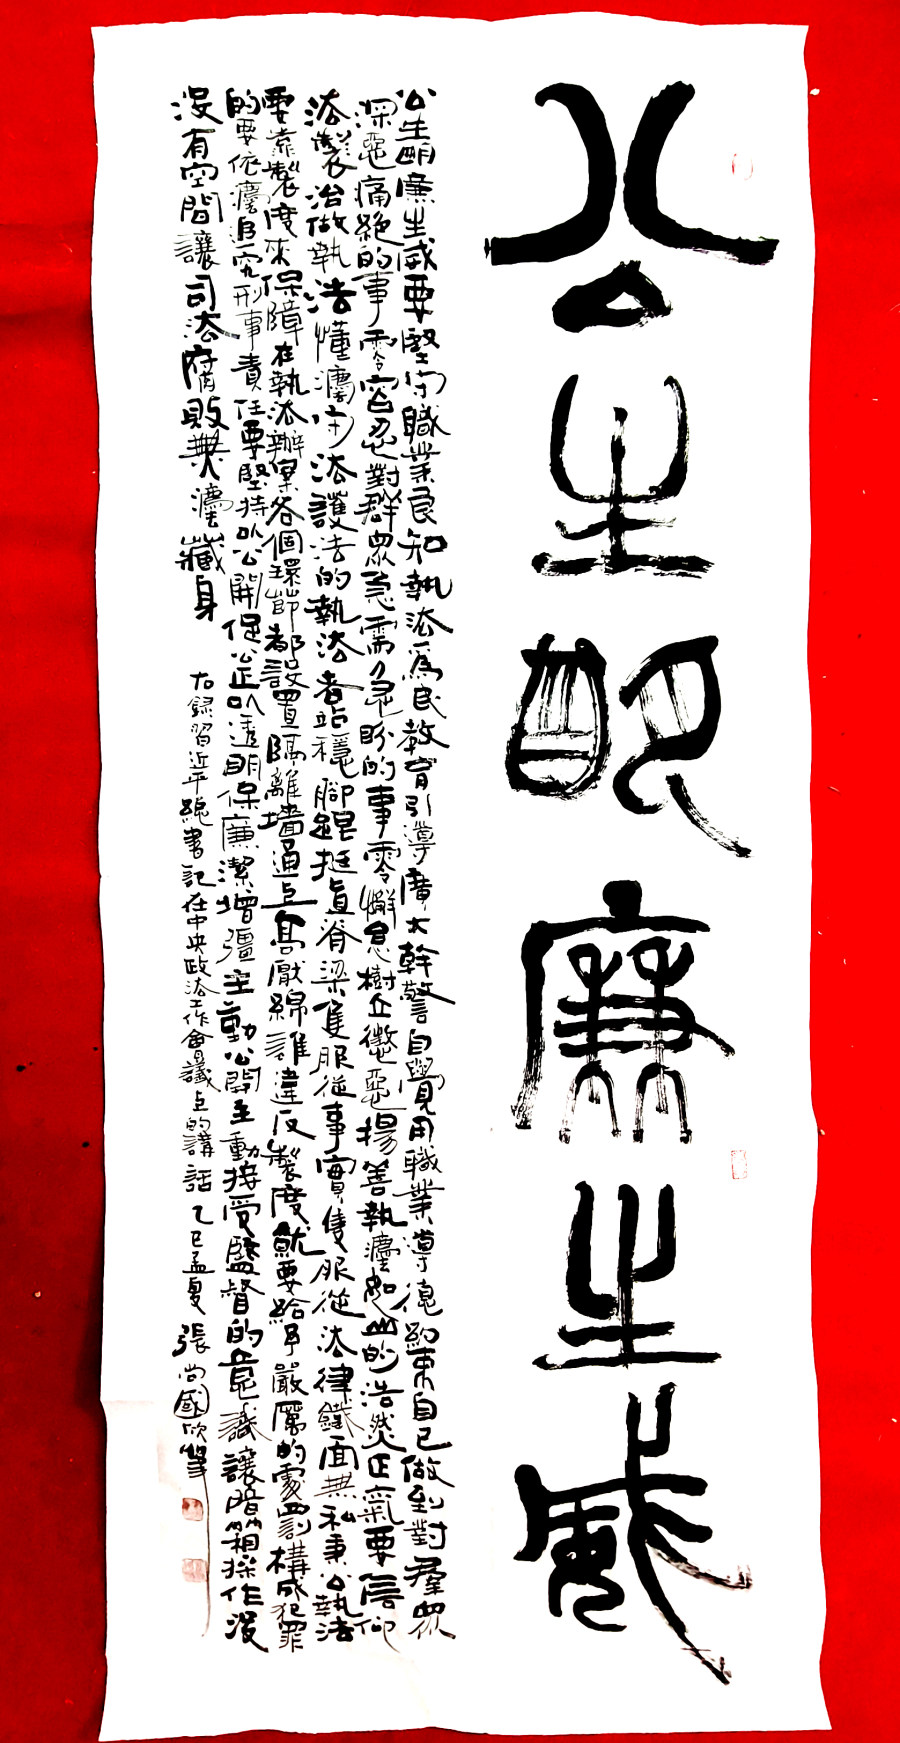 公生明廉生威
公生明廉生威要堅守職業良知執法為民教育引導廣大幹警自覺用職業導德約束自己做到對羣眾
深惡痛絕的事零容忍對群眾急需急盼的事零懈怠樹立懲惡揚善執灋如山的浩然正氣要信仰
法製治做執法懂灋守法護法的執法者站穩腳跟挺直脊梁隻服從事實隻服從法律鐵面無私秉公執法
要靠製度來保障在執法辦案各個環節都設置隔離墻通上高厭線誰違反製度就要給予嚴厲的處罰構成犯罪
的要依灋追究刑事責任要堅持以公開促公正以透明保廉潔增彊主動公開主動接受監督的意識讓暗箱操作沒
沒有空間讓司法腐敗無灋藏身
右錄習近平總書記在中央政法工作會議上的講話 乙巳孟夏 張尚國欣筆